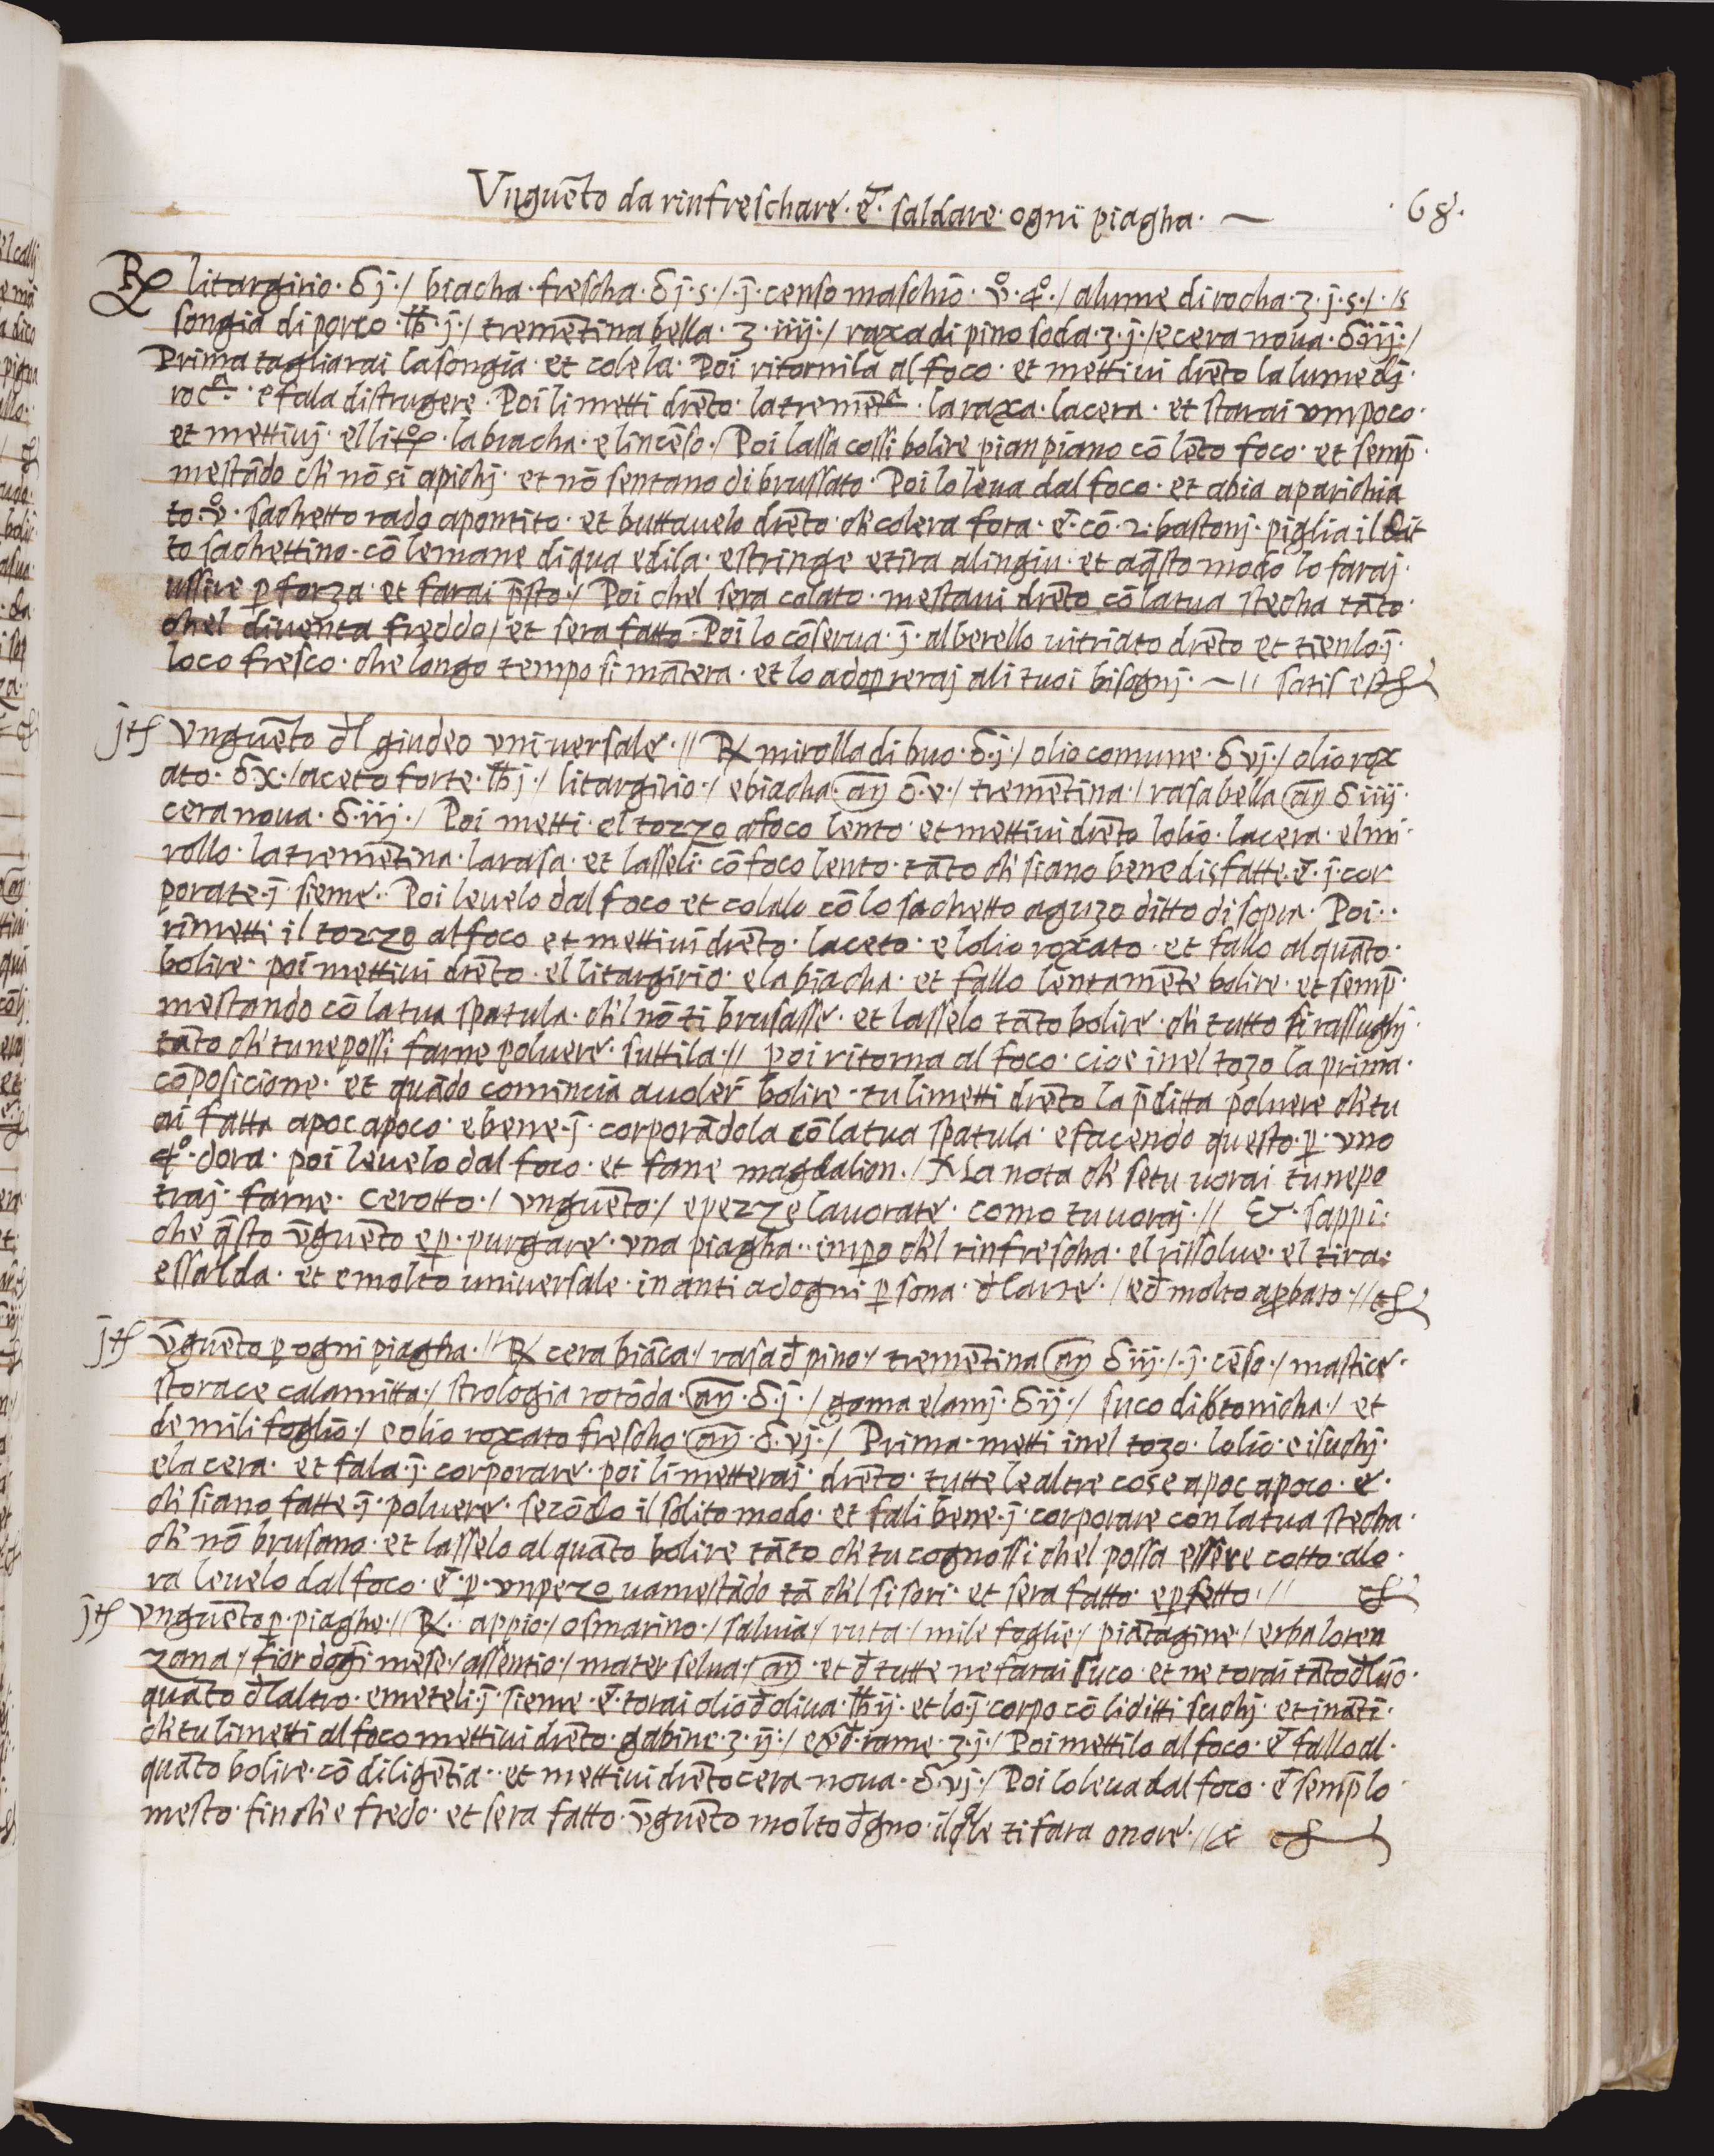 Vnguēto da rinfreschare · ē · saldare · ogni piagha · ~
· 68 ·
℞ litargirio · δ j · / biacha · frescha · δ j · s · / · j · censo maschio · v° · 4° · / alume di rocha · ʒ · j · s · / · / s
songia di porco · lb · j · / tremētina bella · ʒ · iiij · / raxa di pino soda · ʒ · j · / e cera noua · δ · iij · /
Prima tagliarai la songia · et colela · Poi ritornila al foco · et mettiui drēto lalume dj ·
rocª · e fala distrugere · Poi li metti drēto · la tremētª · la raxa · la cera · et starai vmpoco ·
et mettiuj · el lit° · la biacha · e lincēso · / Poi lassa cossi bolire pian piano cō lēto foco · et semp̄ ·
mestādo ch' nō si apichj · et nō sentano di brussato · Poi lo leua dal foco · et abia aparichia
to · v° · sachetto rado apontito · et buttauelo drēto ch' colera fora · ē · cō · 2 · bastonj · piglia il dit
to sachettino · cō le mane di qua e di la · e stringe e tira alingiu · et a q̄sto modo lo faraj ·
ussire ꝑ forza · et farai p̄sto · / Poi chel sera colato · mestaui drēto cō la tua stecha tāto ·
chel diuenta freddo / et sera fatto · Poi lo cōserua · j · alberello uitriato drēto et tienlo · j ·
loco fresco · che longo tempo si māterra · et lo adopreraj ali tuoi bisognj · ~ // satis est
jtꝭ Vnguēto d̄l giudeo vniuersale · // ℞ mirolla di buo · δ · j · / olio comune · δ vj · / olio rox
ato · δ · x · / aceto forte · lb j · / litargirio · / e biacha · an̄ δ · v · / tremētina · / rasa bella an̄ δ iiij ·
cera noua · δ · iij · / Poi metti · el tozzo a foco lento · et mettiui drēto lolio · la cera · el mi
rollo · la tremētina · la rasa · et lasseli · cō foco lento · tāto ch' siano bene disfatte · ē · j · cor
porate · j · sieme · Poi leuelo dal foco et colalo cō lo sachetto aguzo ditto di sopra · Poi ·
rimetti il tozzo al foco et mettiui drēto · laceto · e lolio roxato · et fallo alquāto ·
bolire · poi mettiui drēto · el litargirio · e la biacha · et fallo lentamēte bolire · et semp̄ ·
mestando cō la tua spatula · ch'l nō ti brusasse · et lasselo tāto bolire · ch' tutto si rassughj ·
tāto ch' tu ne possi farne poluere · suttila · // poi ritorna al foco · cioe inel tozo la prima ·
cōposicione · et quādo comincia a uoler' bolire · tu li metti drēto la p̄ditta poluere ch' tu
ai fatta apoc apoco · e bene · j · corporādola cō la tua spatula · e facendo questo · ꝑ · vno
4° · dora · poi leuelo dal foco · et fane magdalion · / Ma nota ch' se tu uorai tu ne po
traj · farne · cerotto · / vnguēto · / e pezze lauorate · como tu uoraj · // Et · sappi :
che q̄sto v̄guēto e ꝑ · purgare · vna piagha · impo ch'l rinfrescha · el rissolue · el tira :
essalda · et e molto uniuersale · inanti ad ogni ꝑsona · d̄ l'arte · / ed molto aꝓbato · //
jtꝭ v̄guēto ꝑ ogni piagha · // ℞ cera biāca · / rasa d̄ pino · / tremētina an̄ δ iij · / · j · cēso · / mastice ·
storace calamitta · / strologia rotōda · an̄ · δ · j · / goma elamj · δ ij · / suco di btonicha · / et
de mili foglio · / e olio roxato frescho · an̄ · δ · vj · / Prima · metti inel tozo · lolio · e i suchj ·
e la cera · et fala · j · corporare · poi li metteraj · drēto · tutte le altre cose apoc apoco · e ·
ch' siano fatte · j · poluere · secōdo il solito modo · et fali bene · j · corporare con la tua stecha ·
ch' nō brusano · et lasselo alquāto bolire tāto ch' tu cognossi chel possa essere cotto · alo ·
ra leuelo dal foco · ē · ꝑ · vn pezo ua mestādo tā ch'l si sori · et sera fatto · e ꝑfetto · //
jtꝭ vnguēto ꝑ · piaghe · // ℞ · appio · / osmarino · / saluia · / ruta · / mile foglie · / piātagine · / erba loren
zana · / fior dogī mese · / assentio · / mater selua · / an̄ · et d̄ tutte ne farai suco · et ne torai tāto d̄ luō ·
quāto d̄ laltro · e meteli · j · sieme · ē · torai olio d̄ oliua · lb ij · et lo · j · corpo cō li ditti suchj · et ināti ·
ch' tu li metti al foco mettiui drēto · gabine · ʒ · ij · / e d̄ rame · ʒ · j · / Poi mettilo al foco · ē fallo al ·
quāto bolire · cō diligētia · et mettiui drēto cera noua · δ · vj · / Poi lo leua dal foco · ē semp̄ lo ·
mesto · fin ch' e fredo · et sera fatto · v̄guēto molto d̄gno · il qle ti fara onore · //